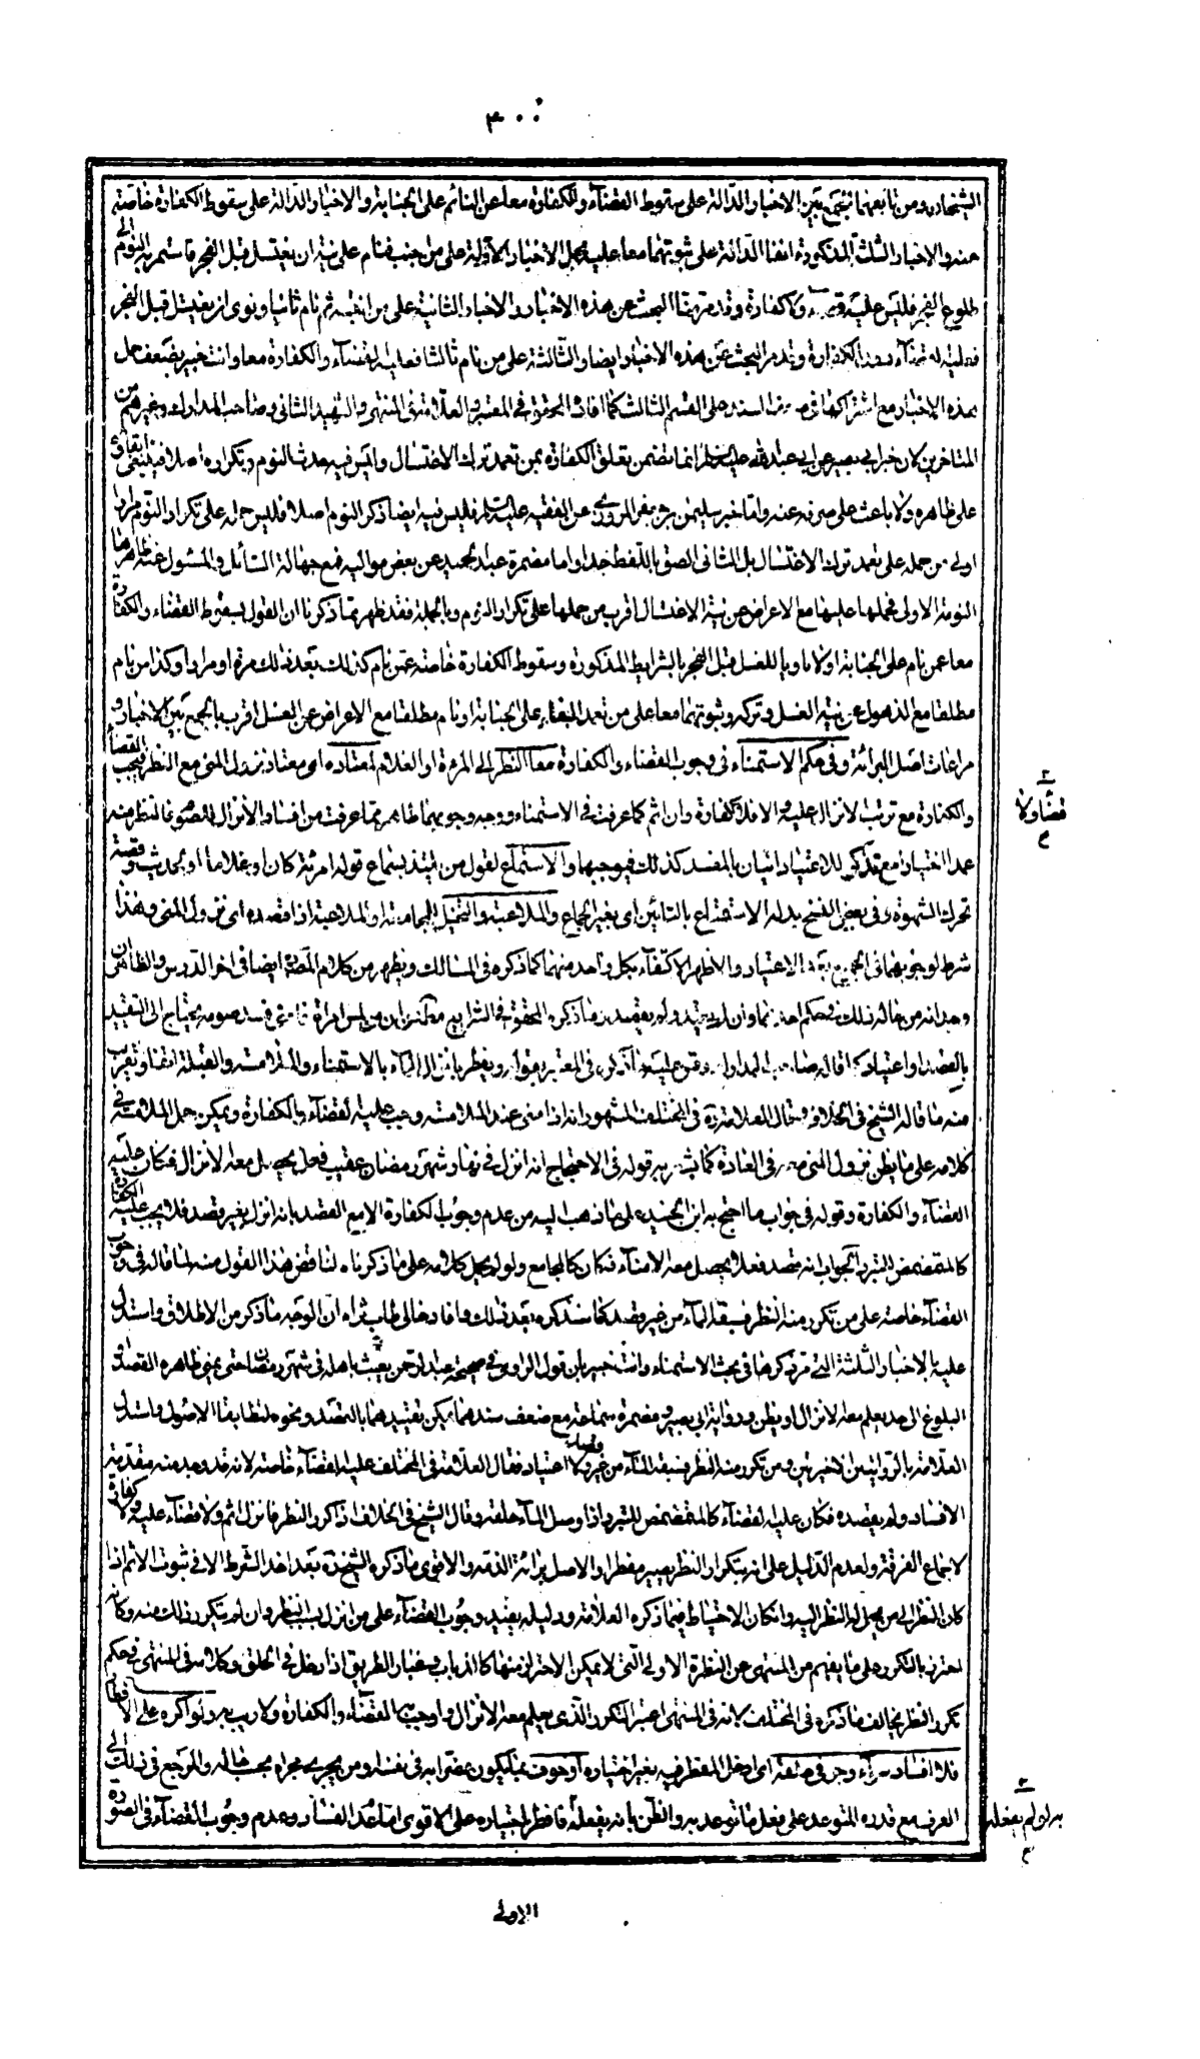 الشيخان ره ومن تابعهما فنجمع بين الاخبار الدالة على سقوط القضآء والكفارة معا عن النائم على الجنابة والاخبار الدالة على سقوط الكفارة خاصة
عنه والاخبار الثلثة المذكورة انفا الدالة على ثبوتهما معا عليه بحمل الاخبار الاولة على من اجنب فنام على نية ان يغتسل قبل الفجر فاستمر به النوم الى
طلوع الفجر فليس عليه ولا كفارة وقد مر منا البحث عن هذه الاخبار والاخبار الثانية على من انتبه ثم نام ثانيا ونوى ان يغتسل قبل الفجر
فعليه القضآء دون الكفارة وقد مر البحث عن هذه الاخبار ايضا والثالثة على من نام ثالثا فعليه القضآء والكفارة معا وانت خبير بضعف حمل
هذه الاخبار مع اشتراكها في السند على القسم الثالث كما افاده المحقق في المعتبر والعلامة في المنتهى والشهيد الثاني وصاحب المدارك وغيرهم من
المتاخرين لان خبر ابي بصير عن ابي عبدالله عليه السلام انما تضمن تعلق الكفارة بمن تعمد ترك الاغتسال وليس فيه حديث النوم وتكراره اصلا فينبغي ابقاؤه
على ظاهره ولا باعث على صرفه عنه واما خبر سليمن بن جعفر المروزي عن الفقيه عليه السلام فليس فيه ايضا ذكر النوم اصلا فليس حمله على تكرار النوم مرارا
اولى من حمله على تعمد ترك الاغتسال بل الثاني الصق باللفظ جدا واما مضمرة عبدالحميد عن بعض مواليه فمع جهالة السائل والمسئول عنه ظاهرها
النومة الاولى فحملها عليها مع الاعراض عن نية الاغتسال اقرب من حملها على تكرار النوم وبالجملة فقد ظهر مما ذكرنا ان القول بسقوط القضاء والكفارة
معا عمن نام على الجنابة اولا ناويا للغسل قبل الفجر بالشرايط المذكورة وسقوط الكفارة خاصة عمن نام كذلك بعد ذلك مرة او مرارا وكذا من نام
مطلقا مع الذهول عن نية الغسل وتركه وثبوتهما معا على من تعمد البقاء على الجنابة او نام مطلقا مع الاعراض عن الغسل اقرب بالجمع بين الاخبار و
مراعات اصل البرائة وفي حكم الاستمناء في وجوب القضاء والكفارة معا النظر الى المرءة او الغلام لمعتاده اى معتاد نزول المني مع النظر فيجب القضاء
والكفارة مع ترتب الانزال عليه والا فلا كفارة وان اثم كما عرفت في الاستمناء ووجه وجوبهما ظاهر مما عرفت من افساد الانزال للصوم فالنظر منه
عمدا اختيارا مع تذكر للاعتياد اتيان بالمفسد كذلك فيوجبهما والاستماع لقول من يلتذ بسماع قوله امرئة كان او غلاما او لحديث وقصة
تحرك الشهوة وفي بعض النسخ بدله الاستمتاع بالتائين اى بغير الجماع والملاعبة والتخيل للمجامعة او الملاعبة اذا قصده اى نزول المني وهذا
شرط لوجوبهما في الجميع بعد الاعتياد والاظهر الاكتفآء بكل واحد منهما كما ذكره في المسالك ويظهر من كلام المصنف ايضا في اخر الدروس والظاهر ان
وجدانه من حاله ذلك في حكم احدهما وان لم يعتد ولم يقصد فما ذكره المحقق في الشرايع من لمس امرئة فامنى فسد صومه يحتاج الى التقييد
بالقصد او اعتياده كما افاده صاحب المدارك وقس عليه ما ذكره في المعتبر بقوله ويفطر بانزال المآء بالاستمناء والملامسة والقبلة اتفاقا وقريب
منه ما قاله الشيخ في الخلاف وقال العلامة ره في المختلف المشهور انه اذا امنى عند الملامسة وجب عليه القضآء والكفارة ويمكن حمل الملامسة في
كلامه على ما يظن نزول المني معه في العادة كما يشعر به قوله في الاحتجاج انه انزل في نهار شهر رمضان عقيب فعل يحصل معه الانزال فكان عليه
القضآء والكفارة وقوله في جواب ما احتج به ابن الجنيد على ما ذهب اليه من عدم وجوب الكفارة الا مع القصد بانه انزل بغير قصد فلا يجب عليه الكفارة
كالمتمضمض للتبرد الجواب انه قصد فعلا يحصل معه الامناء فكان كالمجامع ولو لم يحمل كلامه على ما ذكرناه لتناقض هذا القول منه لما قاله في وجوب
القضآء خاصة على من تكرر منه النظر فسبقه المآء من غير قصد كما سنذكره بعد ذلك وافاد خالي طاب ثراه ان الوجه ما ذكر من الاطلاق واستدل
عليه بالاخبار الثلثة التي مر ذكرها في بحث الاستمناء وانت خبير بان قول الراوي في صحيحة عبدالرحمن يعبث باهله في شهر رمضان حتى يمنى ظاهره القصد او
البلوغ الى حد يعلم معه الانزال او يظن ورواية ابي بصير ومضمرة سماعة مع ضعف سندهما يمكن تقييدهما بالقصد ونحوه لتطابقا الاصول واستدل
العلامة بالروايتين الاخيرتين ومن تكرر منه النظر فسبقه المآء من غير قصد ولا اعتياد فقال العلامة في المختلف عليه القضآء خاصة لانه قد وجد منه مقدمة
الافساد ولم يقصده فكان عليه القضآء كالمتمضمض للتبرد اذا وصل المآء حلقه وقال الشيخ في الخلاف اذا كرر النظر فانزل اثم ولا قضآء عليه ولا كفارة
لاجماع الفرقة ولعدم الدليل على انه بتكرار النظر يصير مفطرا والاصل برائة الذمة والاقوى ما ذكره الشيخ ره بعد اخذ الشرط الا في ثبوت الاثم اذا
كان النظر الى من يحل له النظر اليه وان كان الاحتياط فيما ذكره العلامة ودليله يفيد وجوب القضآء على من انزل بسبب النظر وان لم يتكرر ذلك منه وكانه
احترز بالتكرر على ما يفهم من المنتهى عن النظرة الاولى التي لا يمكن الاحتراز منها كالذباب وغبار الطريق اذا دخل في الحلق وكلامه في المنتهى في حكم
تكرر النظر يخالف ما ذكره في المختلف لانه في المنتهى اعتبر التكرر الذي يعلم معه الانزال واوجب به القضآء والكفارة ولا ريب به ولو اكره على الافطار
فلا افساد سوآء وجر في حلقه اى ادخل المفطر فيه بغير اختياره او خوف بما يكون مضرا به في نفسه او من يجرى مجراه بحسب حاله والمرجع في ذلك الى
العرف مع قدرة المتوعد على فعل ما توعد به والظن بانه يفعله فافطر باختياره على الاقوى اما عدم الفساد وعدم وجوب القضآء في الصورة
قضآء ولا
به لو لم يفعله
الاولى